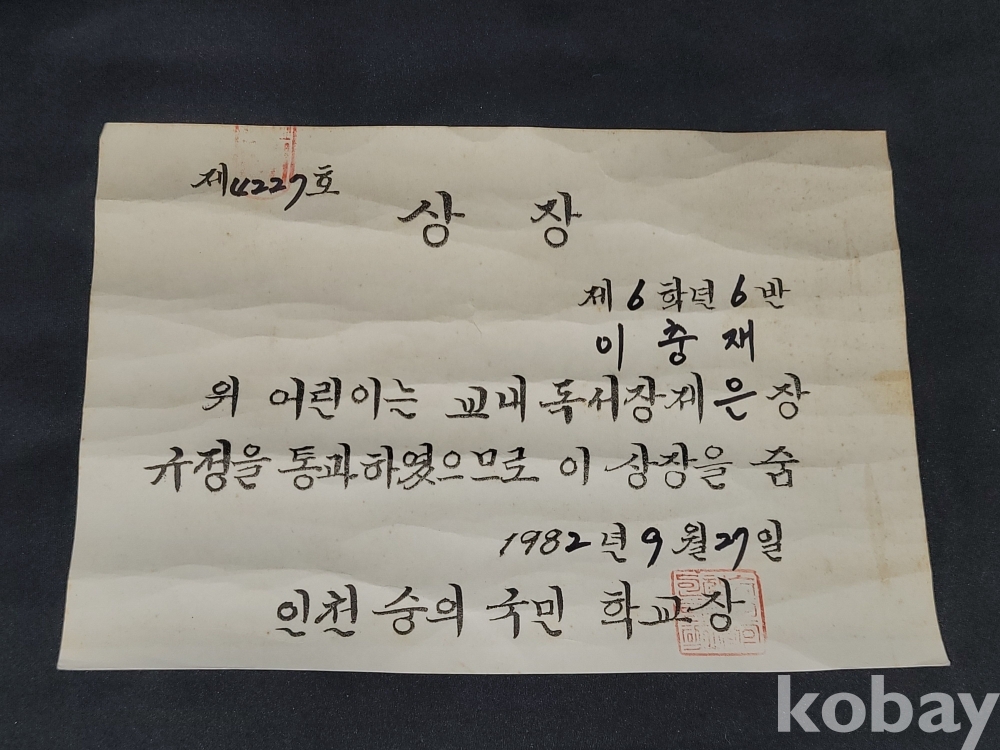 제4227호
상 장
제 6 학년 6 반
이 충 재
위 어린이는 교내 독서장제 은 장
규정을 통과하였으므로 이 상장을 줌
1982년 9월 27일
인천 숭의 국민 학교장
kobay